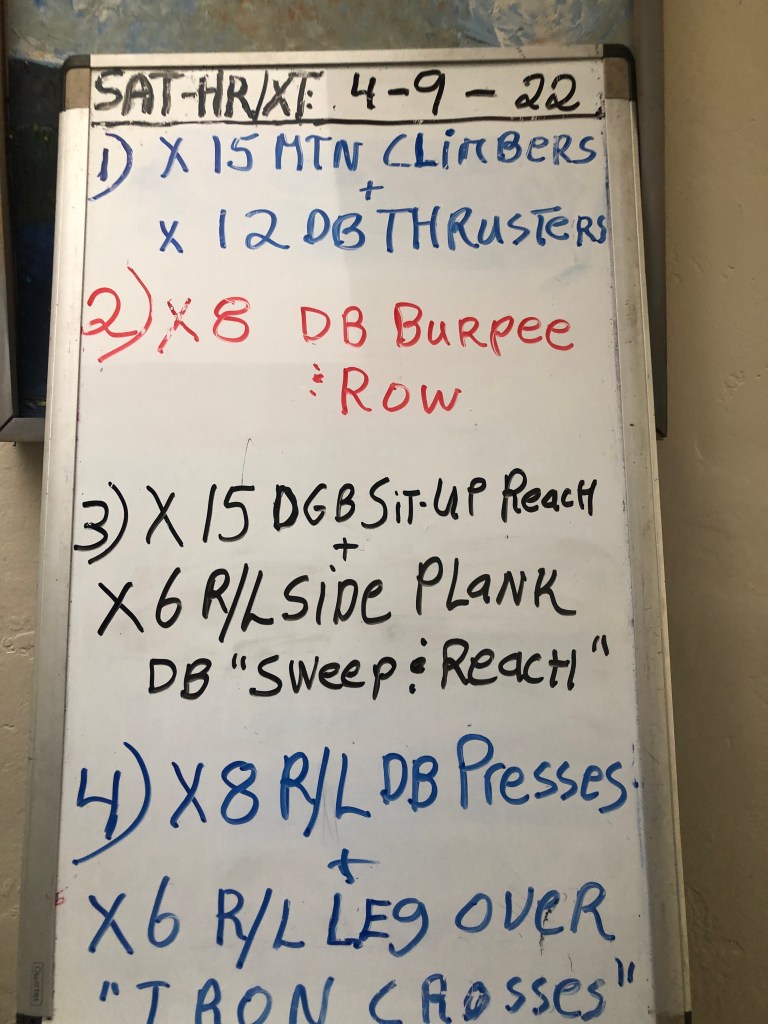 SAT-HR/XT: 4-9-22
1) X 15 MTN CLIMBERS
+
X 12 DB THRUSTERS
2) X8 DB BURPEE
& ROW
3) X 15 DGB SIT-UP REACH
+
X6 R/L SIDE PLANK
DB "SWEEP & REACH"
4) X8 R/L DB PRESSES
+
X6 R/L LEG OVER
"IRON CROSSES"
Quartet